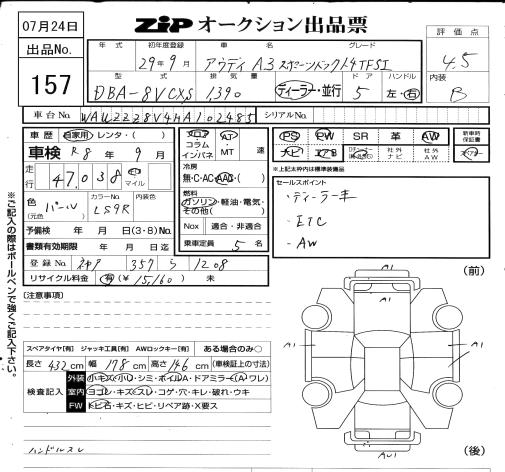 07月24日
ZiP オークション出品票
評価点
4.5
出品No.
157
年式 初年度登録 車名 グレード
29年9月 アウディ A3 スポーツバック 1.4TFSI
内装
B
型式 排気量 ドア ハンドル
DBA-8VCXS 1,390 ディーラー・並行 5 左・右
車台No. シリアルNo.
車歴 自家用・レンタ・( )
車検 R8年9月
走行 47,038 km マイル
色(元色) パール カラーNo. LS9R 内装色
予備検 年 月 日(3・8)No.
書類有効期限 年 月 日迄
登録No. 357 ら 1208
リサイクル料金 有(¥15,160) 未
フロア コラム インパネ AT・MT 速
冷房
無・C・AC・AAC
燃料
ガソリン・軽油・電気・その他( )
Nox 適合・非適合
乗車定員 5名
PS PW SR 革 AW
新車時保証書
ナビ エアB 社外ナビ 社外AW
※上記太枠内は標準装備品
セールスポイント
・ディーラー車
・ETC
・AW
(注意事項)
スペアタイヤ[有] ジャッキ工具[有] AWロックキー[有] ある場合のみ○
長さ 432cm 幅 178cm 高さ 146cm (車検証上の寸法)
検査記入
外装 小キズ・小凹・シミ・ボイルA・ドアミラー(A)ワレ)
室内 ヨゴレ・キズ・スレ・コゲ・穴・キレ・破れ・ウキ
FW トビ石・キズ・ヒビ・リペア跡・X要ス
ハンドルスレ
(前)
A1
A1
A1
A1
AU1
(後)
※ご記入の際はボールペンで強くご記入下さい。